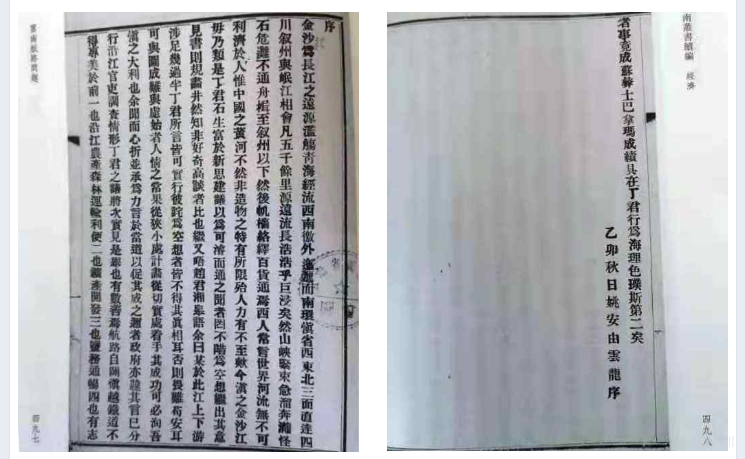 雲南航路問題
四九七
序
金沙爲長江之遠源濫觴靑海經流西南徼外邐迤而南環滇省西東北三面直達四
川叙州與岷江相會凡五千餘里源遠流長浩浩乎巨浸矣然山峽緊束急溜奔灘怪
石危灘不通舟楫至叙州以下然後帆檣絡繹百貨通焉西人常言世界河流無不可
利濟於人惟中國之黃河不然非造物之特有所限殆人力有不至歟今滇之金沙江
毋乃類是丁君石生富於新思建議以爲可濬而通之聞者罔不爲空想繼出其意
見書則規畫井然知非好奇高談者比也繼又晤趙君湘皋語余曰某於此江上下游
涉足幾過半丁君所言皆可實行彼詫爲空想者皆不得其眞相耳否則畏難苟安耳
可與圖成難與慮始者人情之常果從狹小處計畫從切實處着手其成功可必洵吾
滇之大利也余聞而心折並承爲力言於當道以促其成之者政府亦韙其言已分
行沿江官吏調查情形丁君之議將次實見是也有數善焉航路自闢滇越鐵道不
得專美於前一也沿江農產森林運輸利便二也鑛產開發三也鹽務通暢四也有志
南叢書續編 經濟
四九八
者事竟成蘇彝士巴拿瑪成績具在丁君行爲海理色璞斯第二矣
乙卯秋日姚安由雲龍序